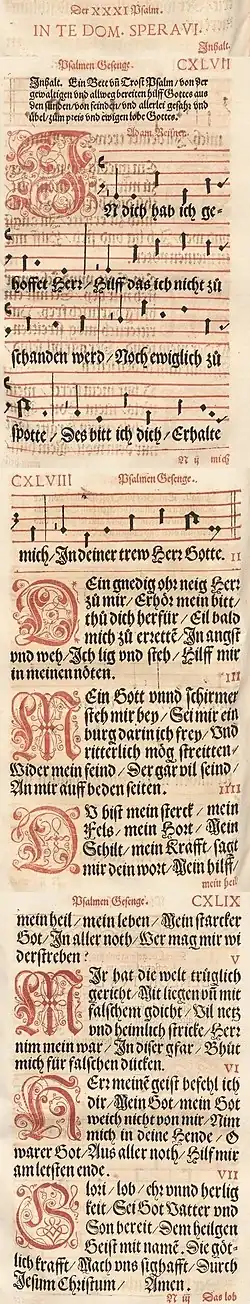 Der XXXI Psalm.
IN TE DOM. SPERAVI.
Inhalt.
Psalmen Gesenge. CXLVII
Inhalt. Ein Bett vñ Trost Psalm / von der
gewaltigen vnd allweg bereiten hilff Gottes aus
den sünden / von feinden / vnd allerlei gefahr vnd
übel / zum preis vnd ewigen lobe Gottes.
Adam Reisner.
IN dich hab ich ge-
hoffet Herr / Hilff das ich nicht zů
schanden werd / Noch ewiglich zů
spotte / Des bitt ich dich / Erhalte
N ij mich
CXLVIII Psalmen Gesenge.
mich / In deiner trew Herr Gotte. II
DEin gnedig ohr neig Herr
zů mir / Erhör mein bitt /
thů dich herfür / Eil bald
mich zů errettẽ / In angst
vnd weh / Ich lig vnd steh / Hilff mir
in meinen nöten. III
MEin Gott vnnd schirmer
steh mir bey / Sei mir ein
burg darin ich frey / Vnd
ritterlich mög streitten /
Wider mein feind / Der gar vil seind /
An mir auff beden seiten. IIII
DV bist mein sterck / mein
Fels / mein Hort / Mein
Schilt / mein Krafft / sagt
mir dein wort / Mein hilff /
mein heil
Psalmen Gesenge. CXLIX
mein heil / mein leben / Mein starcker
Got / In aller noth / Wer mag mir wi
derstreben? V
MIr hat die welt trüglich
gericht / Mit liegen vñ mit
falschem gdicht / Vil netz
vnd heimlich stricke / Herr
nim mein war / In diser gfar / Bhüt
mich für falschen dücken. VI
HErr meinẽ geist befehl ich
dir / Mein Got / mein Got
weich nicht von mir / Nim
mich in deine Hende / O
warer Got / Aus aller noth / Hilff mir
am letsten ende. VII
GLori / lob / ehr vnnd herlig
keit / Sei Got Vatter vnd
Son bereit / Dem heilgen
Geist mit namẽ. Die göt-
lich krafft / Mach vns sighafft / Durch
Jesum Christum / Amen.
N iij Das lob